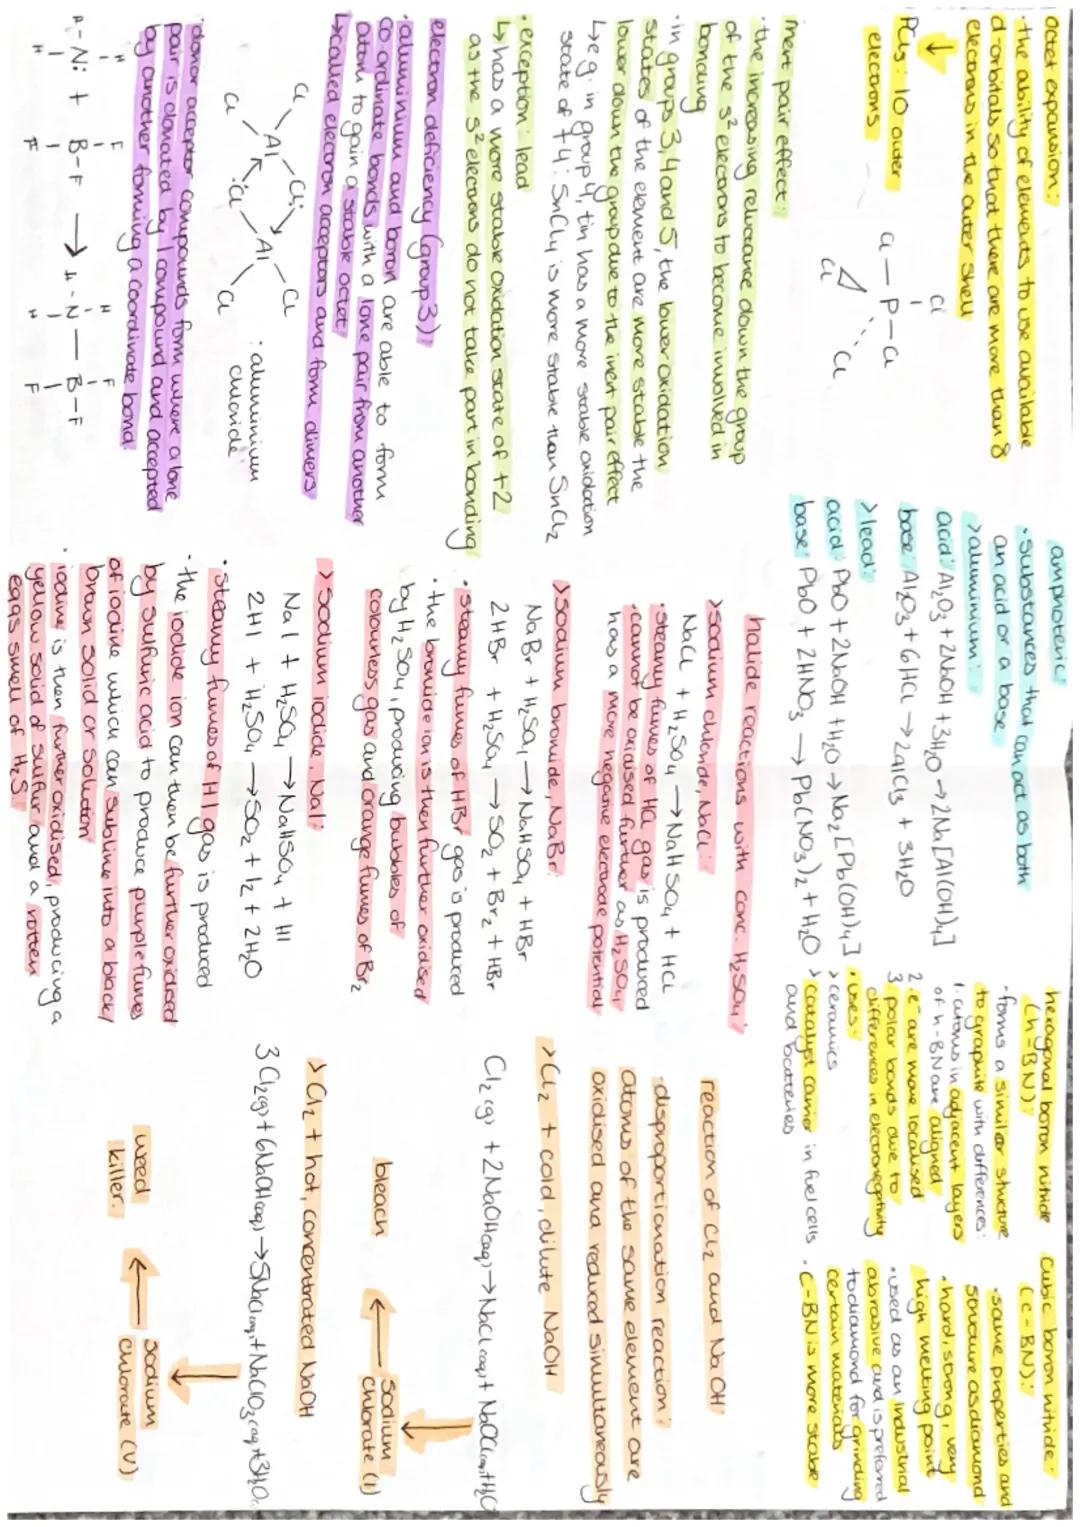 octet expansion:
· the ability of elements to use available
d-orbitals so that there are more than 8
electrons in the outer shell
PCl5: 10 outer
electrons
Cl
Cl — P — Cl
Cl
Cl
inert pair effect:
· the increasing reluctance down the group
of the s² electrons to become involved in
bonding
· in groups 3, 4 and 5, the lower oxidation
states of the element are more stable the
lower down the group due to the inert pair effect
↳ e.g. in group 4, tin has a more stable oxidation
state of +4: SnCl4 is more stable than SnCl2
· exception: lead
↳ has a more stable oxidation state of +2
as the s² electrons do not take part in bonding
electron deficiency (group 3):
· aluminium and boron are able to form
co ordinate bonds with a lone pair from another
atom to gain a stable octet
↳ called electron acceptors and form dimers
Cl Cl: Cl
Al Al
Cl :Cl Cl
: aluminium
chloride
· donor acceptor compounds form where a lone
pair is donated by 1 compound and accepted
by another forming a coordinate bond
H F H F
H - N: + B - F → H - N — B - F
H F H F
amphoteric:
· substances that can act as both
an acid or a base
> aluminium:
acid: Al2O3 + 2NaOH + 3H2O → 2Na[Al(OH)4]
base: Al2O3 + 6HCl → 2AlCl3 + 3H2O
> lead:
acid: PbO + 2NaOH + H2O → Na2[Pb(OH)4]
base: PbO + 2HNO3 → Pb(NO3)2 + H2O
halide reactions with conc. H2SO4:
> sodium chloride, NaCl:
NaCl + H2SO4 → NaHSO4 + HCl
· steamy fumes of HCl gas is produced
· cannot be oxidised further as H2SO4
has a more negative electrode potential
> sodium bromide, NaBr:
NaBr + H2SO4 → NaHSO4 + HBr
2HBr + H2SO4 → SO2 + Br2 + HBr
· steamy fumes of HBr gas is produced
· the bromide ion is then further oxidised
by H2SO4, producing bubbles of
colourless gas and orange fumes of Br2
> sodium iodide, NaI:
NaI + H2SO4 → NaHSO4 + HI
2HI + H2SO4 → SO2 + I2 + 2H2O
· steamy fumes of HI gas is produced
· the iodide ion can then be further oxidised
by sulfuric acid to produce purple fumes
of iodine which can sublime into a black/
brown solid or solution
· iodine is then further oxidised, producing a
yellow solid of sulfur and a rotten
eggs smell of H2S
hexagonal boron nitride
(h-BN):
· forms a similar structure
to graphite with differences:
1. atoms in adjacent layers
of h-BN are aligned
2. e⁻ are more localised
3. polar bonds due to
differences in electronegativity
· uses:
> ceramics
> catalyst carrier in fuel cells
and batteries
cubic boron nitride:
(c-BN):
· same properties and
structure as diamond
· hard, strong, very
high melting point
· used as an industrial
abrasive and is preferred
to diamond for grinding
certain materials
· c-BN is more stable
reaction of Cl2 and NaOH:
· disproportionation reaction:
atoms of the same element are
oxidised and reduced simultaneously
> Cl2 + cold, dilute NaOH
Cl2(g) + 2NaOH(aq) → NaCl(aq) + NaOCl(aq) + H2O
bleach
sodium
chlorate (I)
> Cl2 + hot, concentrated NaOH
3Cl2(g) + 6NaOH(aq) → 5NaCl(aq) + NaClO3(aq) + 3H2O
weed
killer.
sodium
chlorate (V)